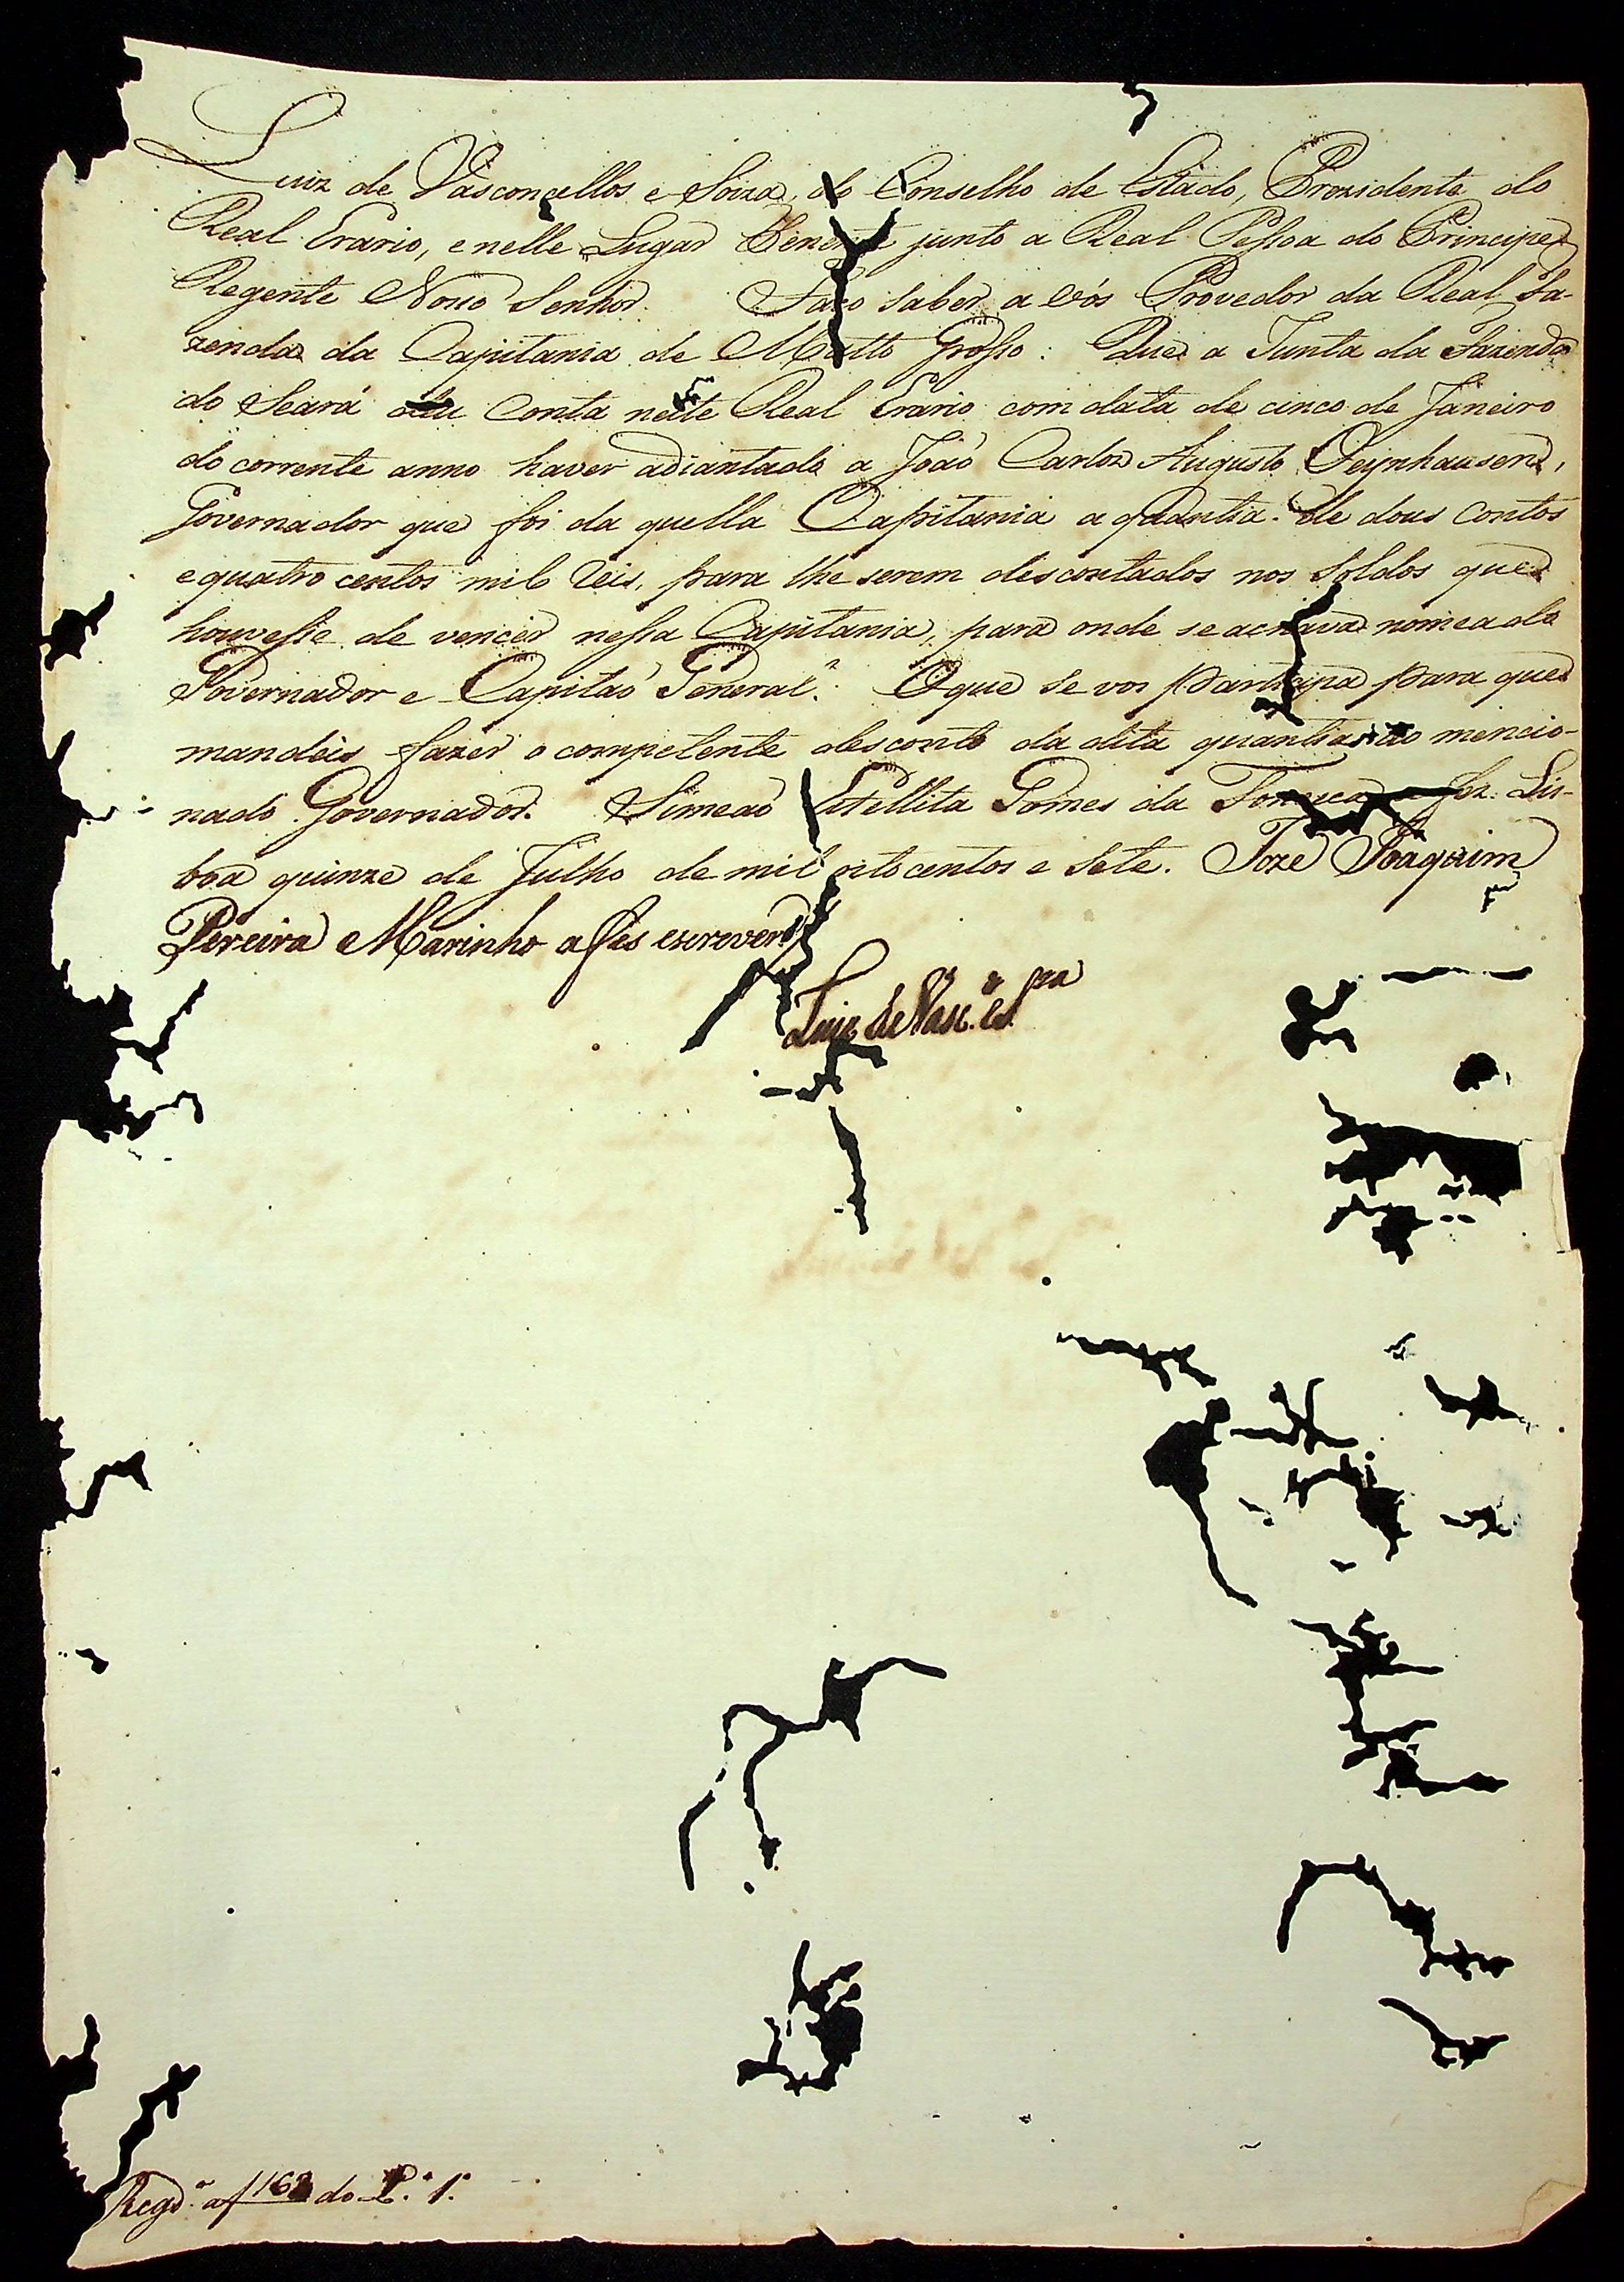 Luiz de Vasconcellos e Soiza, do Conselho de Estado, Prezidente do
Real Erario, e nelle Lugar Tenente junto a Real Pessoa do Principe
Regente Nosso Senhor. Faço saber a vós Provedor da Real Fa-
zenda da Capitania de Matto Grosso: Que a Junta da Fazenda
do Seará deu Conta neste Real Erario com data de cinco de Janeiro
do corrente anno haver adiantado a João Carlos Augusto Oeynhausen,
Governador que foi da quella Capitania a quantia de dous contos
e quatro centos mil reis, para lhe serem descontados nos Soldos que
houvesse de vencer nessa Capitania, para onde se achava nomeado
Governador e Capitaõ General. O que se vos participa para que
mandeis fazer o competente desconto da dita quantia ao mencio-
nado Governador. Simeaõ Estellita Gomes da Fonseca a fez. Lis-
boa quinze de Julho de mil oito centos e sete. Joze Joaquim
Pereira Marinho a fes escrever
Luiz de Vasc.os e Sza
Regd.o a f 162 do L.o 1.o